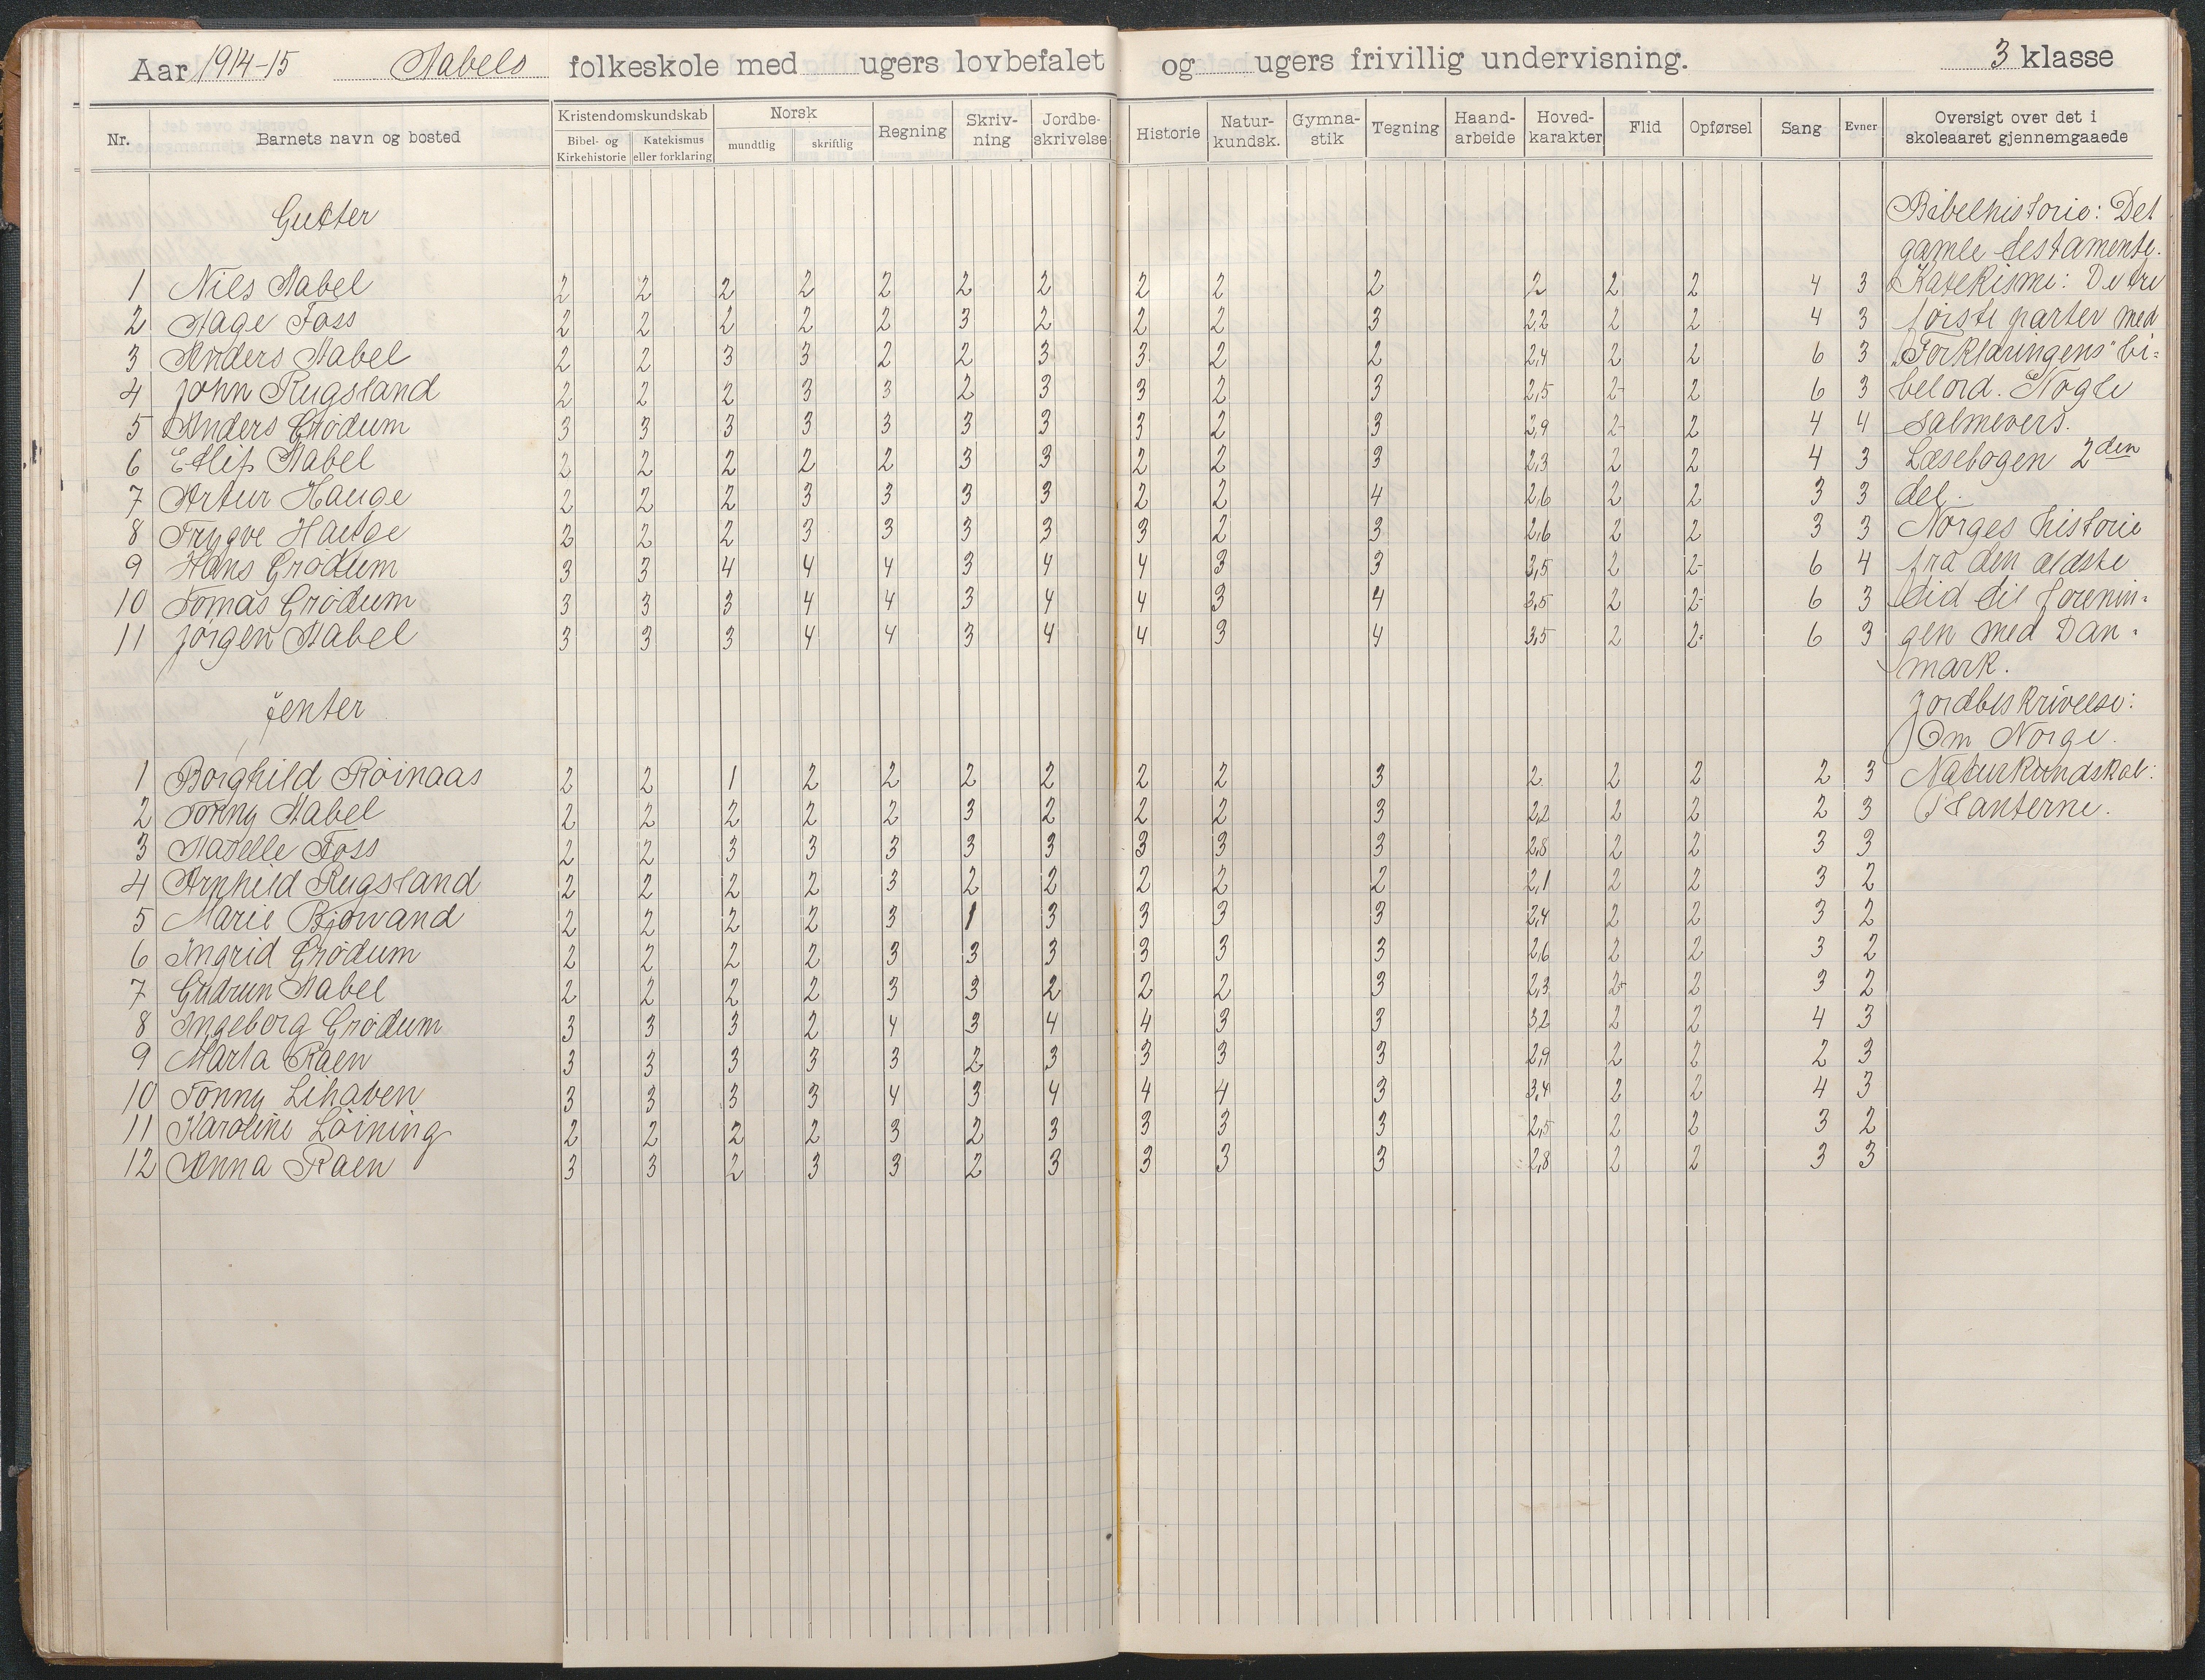 Aar 1914-15 Aabels folkeskole med ugers lovbefalet og ugers frivillig undervisning. 3 klasse
Nr. Barnets navn og bosted Kristendomskundskab Bibel- og Kirkehistorie Katekismus eller forklaring Norsk mundtlig skriftlig Regning Skriv-ning Jordbe-skrivelse Historie Natur-kundsk. Gymna-stik Tegning Haand-arbeide Hoved-karakter Flid Opførsel Sang Evner Oversigt over det i skoleaaret gjennemgaaede
Gutter
1 Nils Aabel 2 2 2 2 2 2 2 2 2 2 2 2 2 4 3
2 Aage Foss 2 2 2 2 2 3 2 2 2 3 2,2 2 2 4 3
3 Anders Aabel 2 2 3 3 2 2 3 3 2 2 2,4 2 2 6 3
4 John Rugsland 2 2 2 3 3 2 3 3 2 3 2,5 2- 2 6 3
5 Anders Grødum 3 3 3 3 3 3 3 3 2 3 2,9 2- 2 4 4
6 Edlif Aabel 2 2 2 2 2 3 3 2 2 3 2,3 2 2 4 3
7 Artur Hauge 2 2 2 3 3 3 3 2 2 4 2,6 2 2 3 3
8 Trygve Hauge 2 2 2 3 3 3 3 3 2 3 2,6 2 2 3 3
9 Hans Grødum 3 3 4 4 4 3 4 4 3 3 3,5 2 2- 6 4
10 Tomas Grødum 3 3 3 4 4 3 4 4 3 4 3,5 2 2- 6 3
11 Jörgen Aabel 3 3 3 4 4 3 4 4 3 4 3,5 2 2- 6 3
Jenter
1 Borghild Röinaas 2 2 1 2 2 2 2 2 2 3 2 2 2 2 3
2 Tonny Aabel 2 2 2 2 2 3 2 2 2 3 2,2 2 2 2 3
3 Foss 2 2 3 3 3 3 3 3 3 3 2,8 2 2 3 3
4 Arnhild Rugsland 2 2 2 2 3 2 2 2 2 2 2,1 2 2 3 2
5 Marie Bjorvand 2 2 2 2 3 1 3 3 3 3 2,4 2 2 3 2
6 Ingrid Grødum 2 2 2 2 3 3 3 3 3 3 2,6 2 2 3 2
7 Gudrun Aabel 2 2 2 2 3 3 2 2 2 3 2,3 2+ 2 3 2
8 Ingeborg Grødum 3 3 3 2 4 3 4 4 3 3 3,2 2 2 4 3
9 Marta Raen 3 3 3 3 3 2 3 3 3 3 2,9 2 2 2 3
10 Tonny Lihaven 3 3 3 3 4 3 4 4 4 3 3,4 2 2 4 3
11 Karoline Löining 2 2 2 2 3 2 3 3 3 3 2,5 2 2 3 2
12 Anna Raen 3 3 2 3 3 2 3 3 3 3 2,8 2 2 3 3
Bibelhistorie: Det
gamle testamente.
Katekisme: De tre
første parter med
"Forklaringens" bi-
belord. Nogle
salmevers.
Læsebogen 2den
del.
Norges historie
fra den ældste
tid til forenin-
gen med Dan-
mark.
Jordbeskrivelse:
Om Norge.
Naturkundskab:
Planterne.